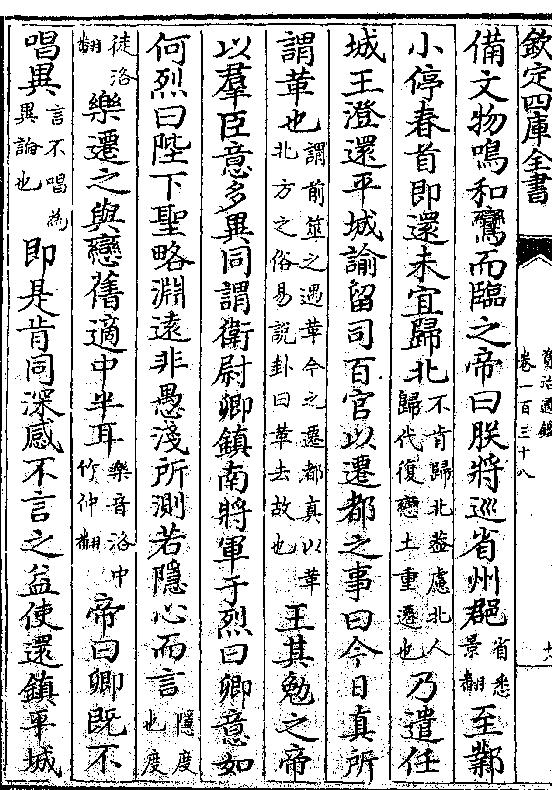 欽定四庫全書
資治通鑑
卷一百三十八
備文物鳴和鸞而臨之帝曰朕將巡省州郡省悉景翻至鄴
小停春首即還未宜歸北不肯歸北葢慮北人歸代復戀土重遷也乃遣任
城王澄還平城諭留司百官以遷都之事曰今日真所
謂革也謂前筮之遇革今之遷都真以革北方之俗易説卦曰革去故也王其勉之帝
以羣臣意多異同謂衛尉卿鎮南將軍于烈曰卿意如
何烈曰陛下聖略淵遠非愚淺所測若隱心而言隱度也度
徒洛翻樂遷之與戀舊適中半耳樂音洛中竹仲翻帝曰卿既不
唱異言不唱為異論也即是肯同深感不言之益使還鎮平城